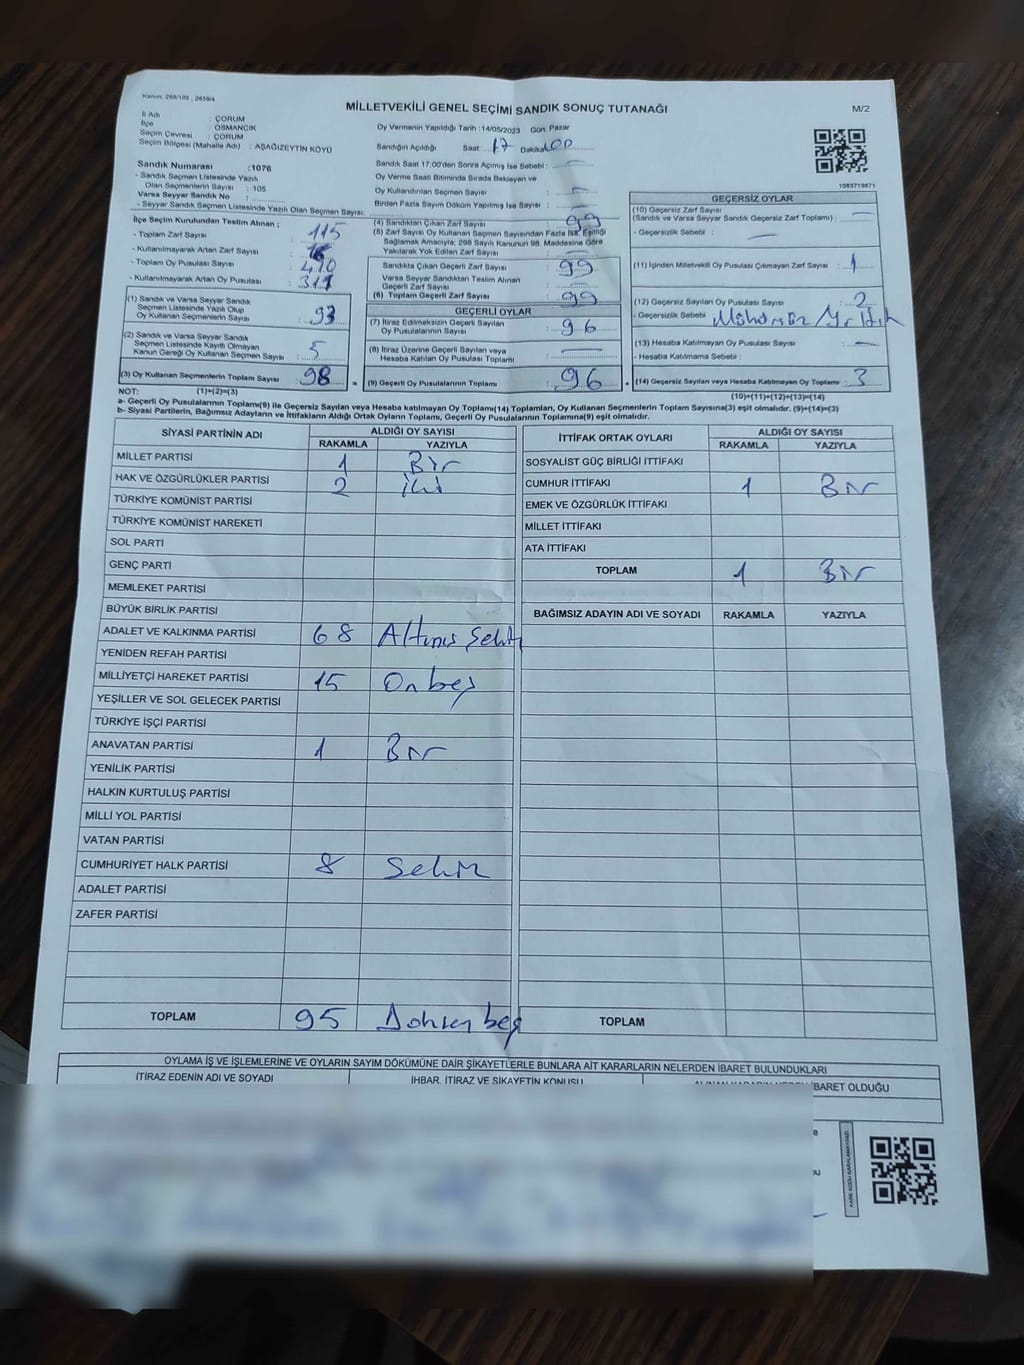 Kanun, 298/105 , 2839/4
MİLLETVEKİLİ GENEL SEÇİMİ SANDIK SONUÇ TUTANAĞI
M/2
İl Adı : ÇORUM
İlçe : OSMANCIK
Seçim Çevresi : ÇORUM
Seçim Bölgesi (Mahalle Adı) : AŞAĞIZEYTİN KÖYÜ
Oy Vermenin Yapıldığı Tarih :14/05/2023 Gün: Pazar
Sandığın Açıldığı Saat : 17 Dakika: 00
Sandık Saat 17.00'den Sonra Açılmış İse Sebebi : —
Oy Verme Saati Bitiminde Sırada Bekleyen ve
Oy Kullandırılan Seçmen Sayısı : —
Birden Fazla Sayım Döküm Yapılmış İse Sayısı : —
Sandık Numarası :1076
- Sandık Seçmen Listesinde Yazılı
Olan Seçmenlerin Sayısı : 105
Varsa Seyyar Sandık No :
- Seyyar Sandık Seçmen Listesinde Yazılı Olan Seçmen Sayısı:
İlçe Seçim Kurulundan Teslim Alınan ;
- Toplam Zarf Sayısı : 115
- Kullanılmayarak Artan Zarf Sayısı : 16
- Toplam Oy Pusulası Sayısı : 410
- Kullanılmayarak Artan Oy Pusulası :
(1) Sandık ve Varsa Seyyar Sandık
Seçmen Listesinde Yazılı Olup
Oy Kullanan Seçmen Sayısı : 93
(2) Sandık ve Varsa Seyyar Sandık
Seçmen Listesinde Kayıtlı Olmayan
Kanun Gereği Oy Kullanan Seçmen Sayısı : 5
(3) Oy Kullanan Seçmenlerin Toplam Sayısı : 98
(4) Sandıktan Çıkan Zarf Sayısı : 99
(5) Zarf Sayısı Oy Kullanan Seçmen Sayısından Fazla İse, Eşitliği
Sağlamak Amacıyla, 298 Sayılı Kanunun 98. Maddesine Göre
Yakılarak Yok Edilen Zarf Sayısı : —
Sandıkta Çıkan Geçerli Zarf Sayısı : 99
Varsa Seyyar Sandıktan Teslim Alınan
Geçerli Zarf Sayısı : —
(6) Toplam Geçerli Zarf Sayısı : 99
GEÇERLİ OYLAR
(7) İtiraz Edilmeksizin Geçerli Sayılan
Oy Pusulalarının Sayısı : 96
(8) İtiraz Üzerine Geçerli Sayılan veya
Hesaba Katılan Oy Pusulası Toplamı : —
= (9) Geçerli Oy Pusulalarının Toplamı : 96
1083719871
GEÇERSİZ OYLAR
(10) Geçersiz Zarf Sayısı
(Sandık ve Varsa Seyyar Sandık Geçersiz Zarf Toplamı) : —
- Geçersizlik Sebebi : —
(11) İçinden Milletvekili Oy Pusulası Çıkmayan Zarf Sayısı : 1
(12) Geçersiz Sayılan Oy Pusulası Sayısı : 2
- Geçersizlik Sebebi :
(13) Hesaba Katılmayan Oy Pusulası Sayısı : —
- Hesaba Katılmama Sebebi :
+ (14) Geçersiz Sayılan veya Hesaba Katılmayan Oy Toplamı : 3
NOT: (1)+(2)=(3)
(10)+(11)+(12)+(13)=(14)
a- Geçerli Oy Pusulalarının Toplamı(9) ile Geçersiz Sayılan veya Hesaba katılmayan Oy Toplamı(14) Toplamları, Oy Kullanan Seçmenlerin Toplam Sayısına(3) eşit olmalıdır. (9)+(14)=(3)
b- Siyasi Partilerin, Bağımsız Adayların ve İttifakların Aldığı Ortak Oyların Toplamı, Geçerli Oy Pusulalarının Toplamına(9) eşit olmalıdır.
SİYASİ PARTİNİN ADI
ALDIĞI OY SAYISI
RAKAMLA YAZIYLA
MİLLET PARTİSİ 1 Bir
HAK VE ÖZGÜRLÜKLER PARTİSİ 2 iki
TÜRKİYE KOMÜNİST PARTİSİ
TÜRKİYE KOMÜNİST HAREKETİ
SOL PARTİ
GENÇ PARTİ
MEMLEKET PARTİSİ
BÜYÜK BİRLİK PARTİSİ
ADALET VE KALKINMA PARTİSİ 68 Altmış Sekiz
YENİDEN REFAH PARTİSİ
MİLLİYETÇİ HAREKET PARTİSİ 15 Onbeş
YEŞİLLER VE SOL GELECEK PARTİSİ
TÜRKİYE İŞÇİ PARTİSİ
ANAVATAN PARTİSİ 1 Bir
YENİLİK PARTİSİ
HALKIN KURTULUŞ PARTİSİ
MİLLİ YOL PARTİSİ
VATAN PARTİSİ
CUMHURİYET HALK PARTİSİ 8 Sekiz
ADALET PARTİSİ
ZAFER PARTİSİ
TOPLAM 95 Doksan beş
İTTİFAK ORTAK OYLARI
ALDIĞI OY SAYISI
RAKAMLA YAZIYLA
SOSYALİST GÜÇ BİRLİĞİ İTTİFAKI
CUMHUR İTTİFAKI 1 Bir
EMEK VE ÖZGÜRLÜK İTTİFAKI
MİLLET İTTİFAKI
ATA İTTİFAKI
TOPLAM 1 Bir
BAĞIMSIZ ADAYIN ADI VE SOYADI RAKAMLA YAZIYLA
TOPLAM
OYLAMA İŞ VE İŞLEMLERİNE VE OYLARIN SAYIM DÖKÜMÜNE DAİR ŞİKAYETLERLE BUNLARA AİT KARARLARIN NELERDEN İBARET BULUNDUKLARI
İTİRAZ EDENİN ADI VE SOYADI
İHBAR, İTİRAZ VE ŞİKAYETİN KONUSU
ALINAN KARARIN NEDEN İBARET OLDUĞU